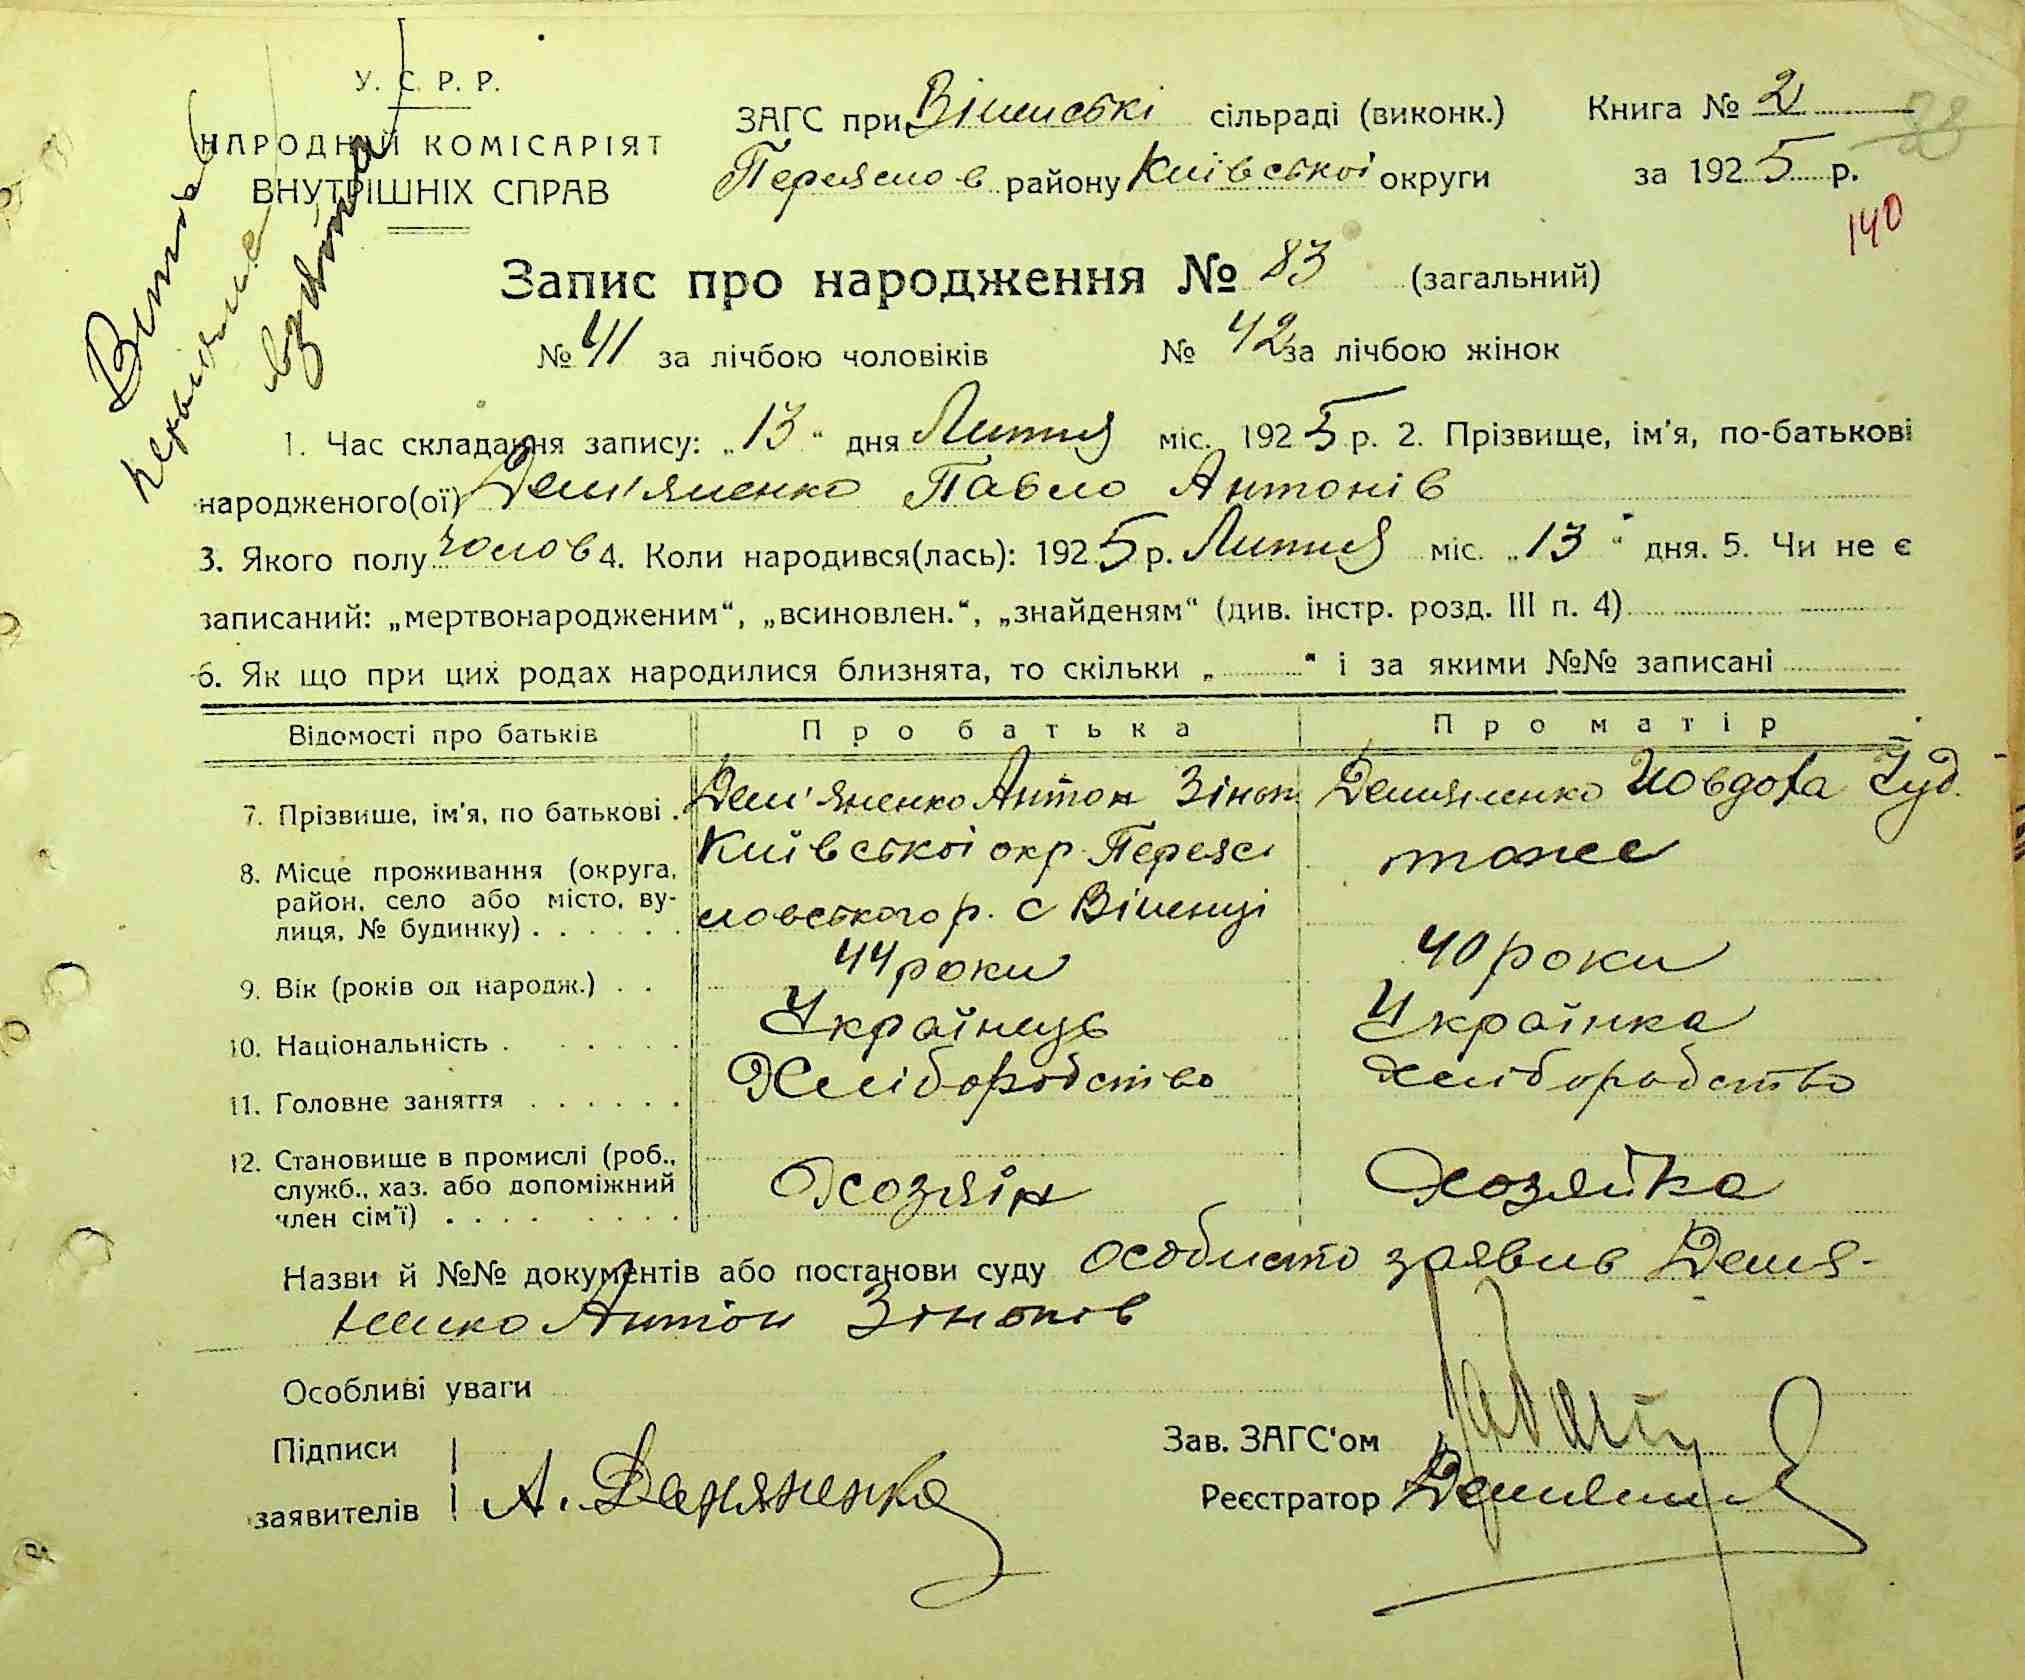 У. С. Р. Р.
НАРОДНИЙ КОМІСАРІЯТ
ВНУТРІШНІХ СПРАВ
ЗАГС при Віненські сільраді (виконк.)
Переяслов району Київської округи
Книга № 2
28
за 1925 р.
140
Запис про народження № 83 (загальний)
№ 41 за лічбою чоловіків № 42 за лічбою жінок
1. Час складання запису: „13“ дня Липня міс. 1925 р. 2. Прізвище, ім'я, по-батькові
народженого(ої) Дем'яненко Павло Антонів
3. Якого полу чолов 4. Коли народився(лась): 1925 р. Липня міс. „13“ дня. 5. Чи не є
записаний: „мертвонародженим“, „всиновлен.“, „знайденям“ (див. інстр. розд. III п. 4)
6. Як що при цих родах народилися близнята, то скільки „ “ і за якими №№ записані
Відомості про батьків Про батька Про матір
7. Прізвище, ім'я, по батькові . Дем'яненко Антон Зінов Демяненко Йовдоха Гуд.
8. Місце проживання (округа, район, село або місто, вулиця, № будинку) Київської окр. Переяс тоже
ловського р. с Віненці
9. Вік (років од народж.) . . 44 роки 40 роки
10. Національність . Українець Українка
11. Головне заняття Хліборобство хліборобство
12. Становище в промислі (роб.,
служб., хаз. або допоміжний
член сім'ї) Хозяїн Хозяйка
Назви й №№ документів або постанови суду особисто заявив Демя-
ненко Антон Зіновів
Особливі уваги
Підписи
заявителів А. Демяненко
Зав. ЗАГС'ом
Реєстратор